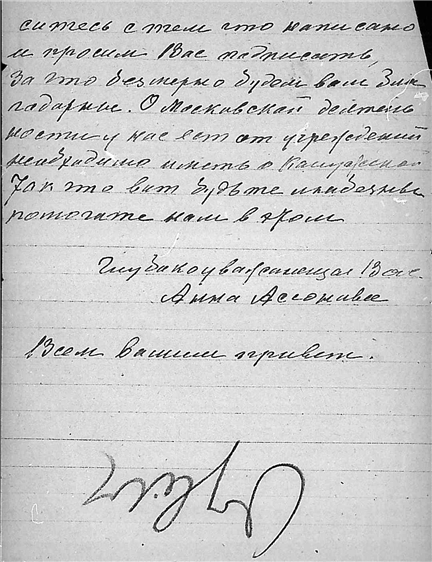 ситесь с тем что написано
и просим Вас подписать,
за что безмерно будем вам бла
гадарные. О Московской деятель
ности у нас ест от учреждений
необходимо иметь о Калужской
Так что вит будьте любезны
помогите нам в этом
Глубакоуважающая Вас
Анна
Всем вашим привет.